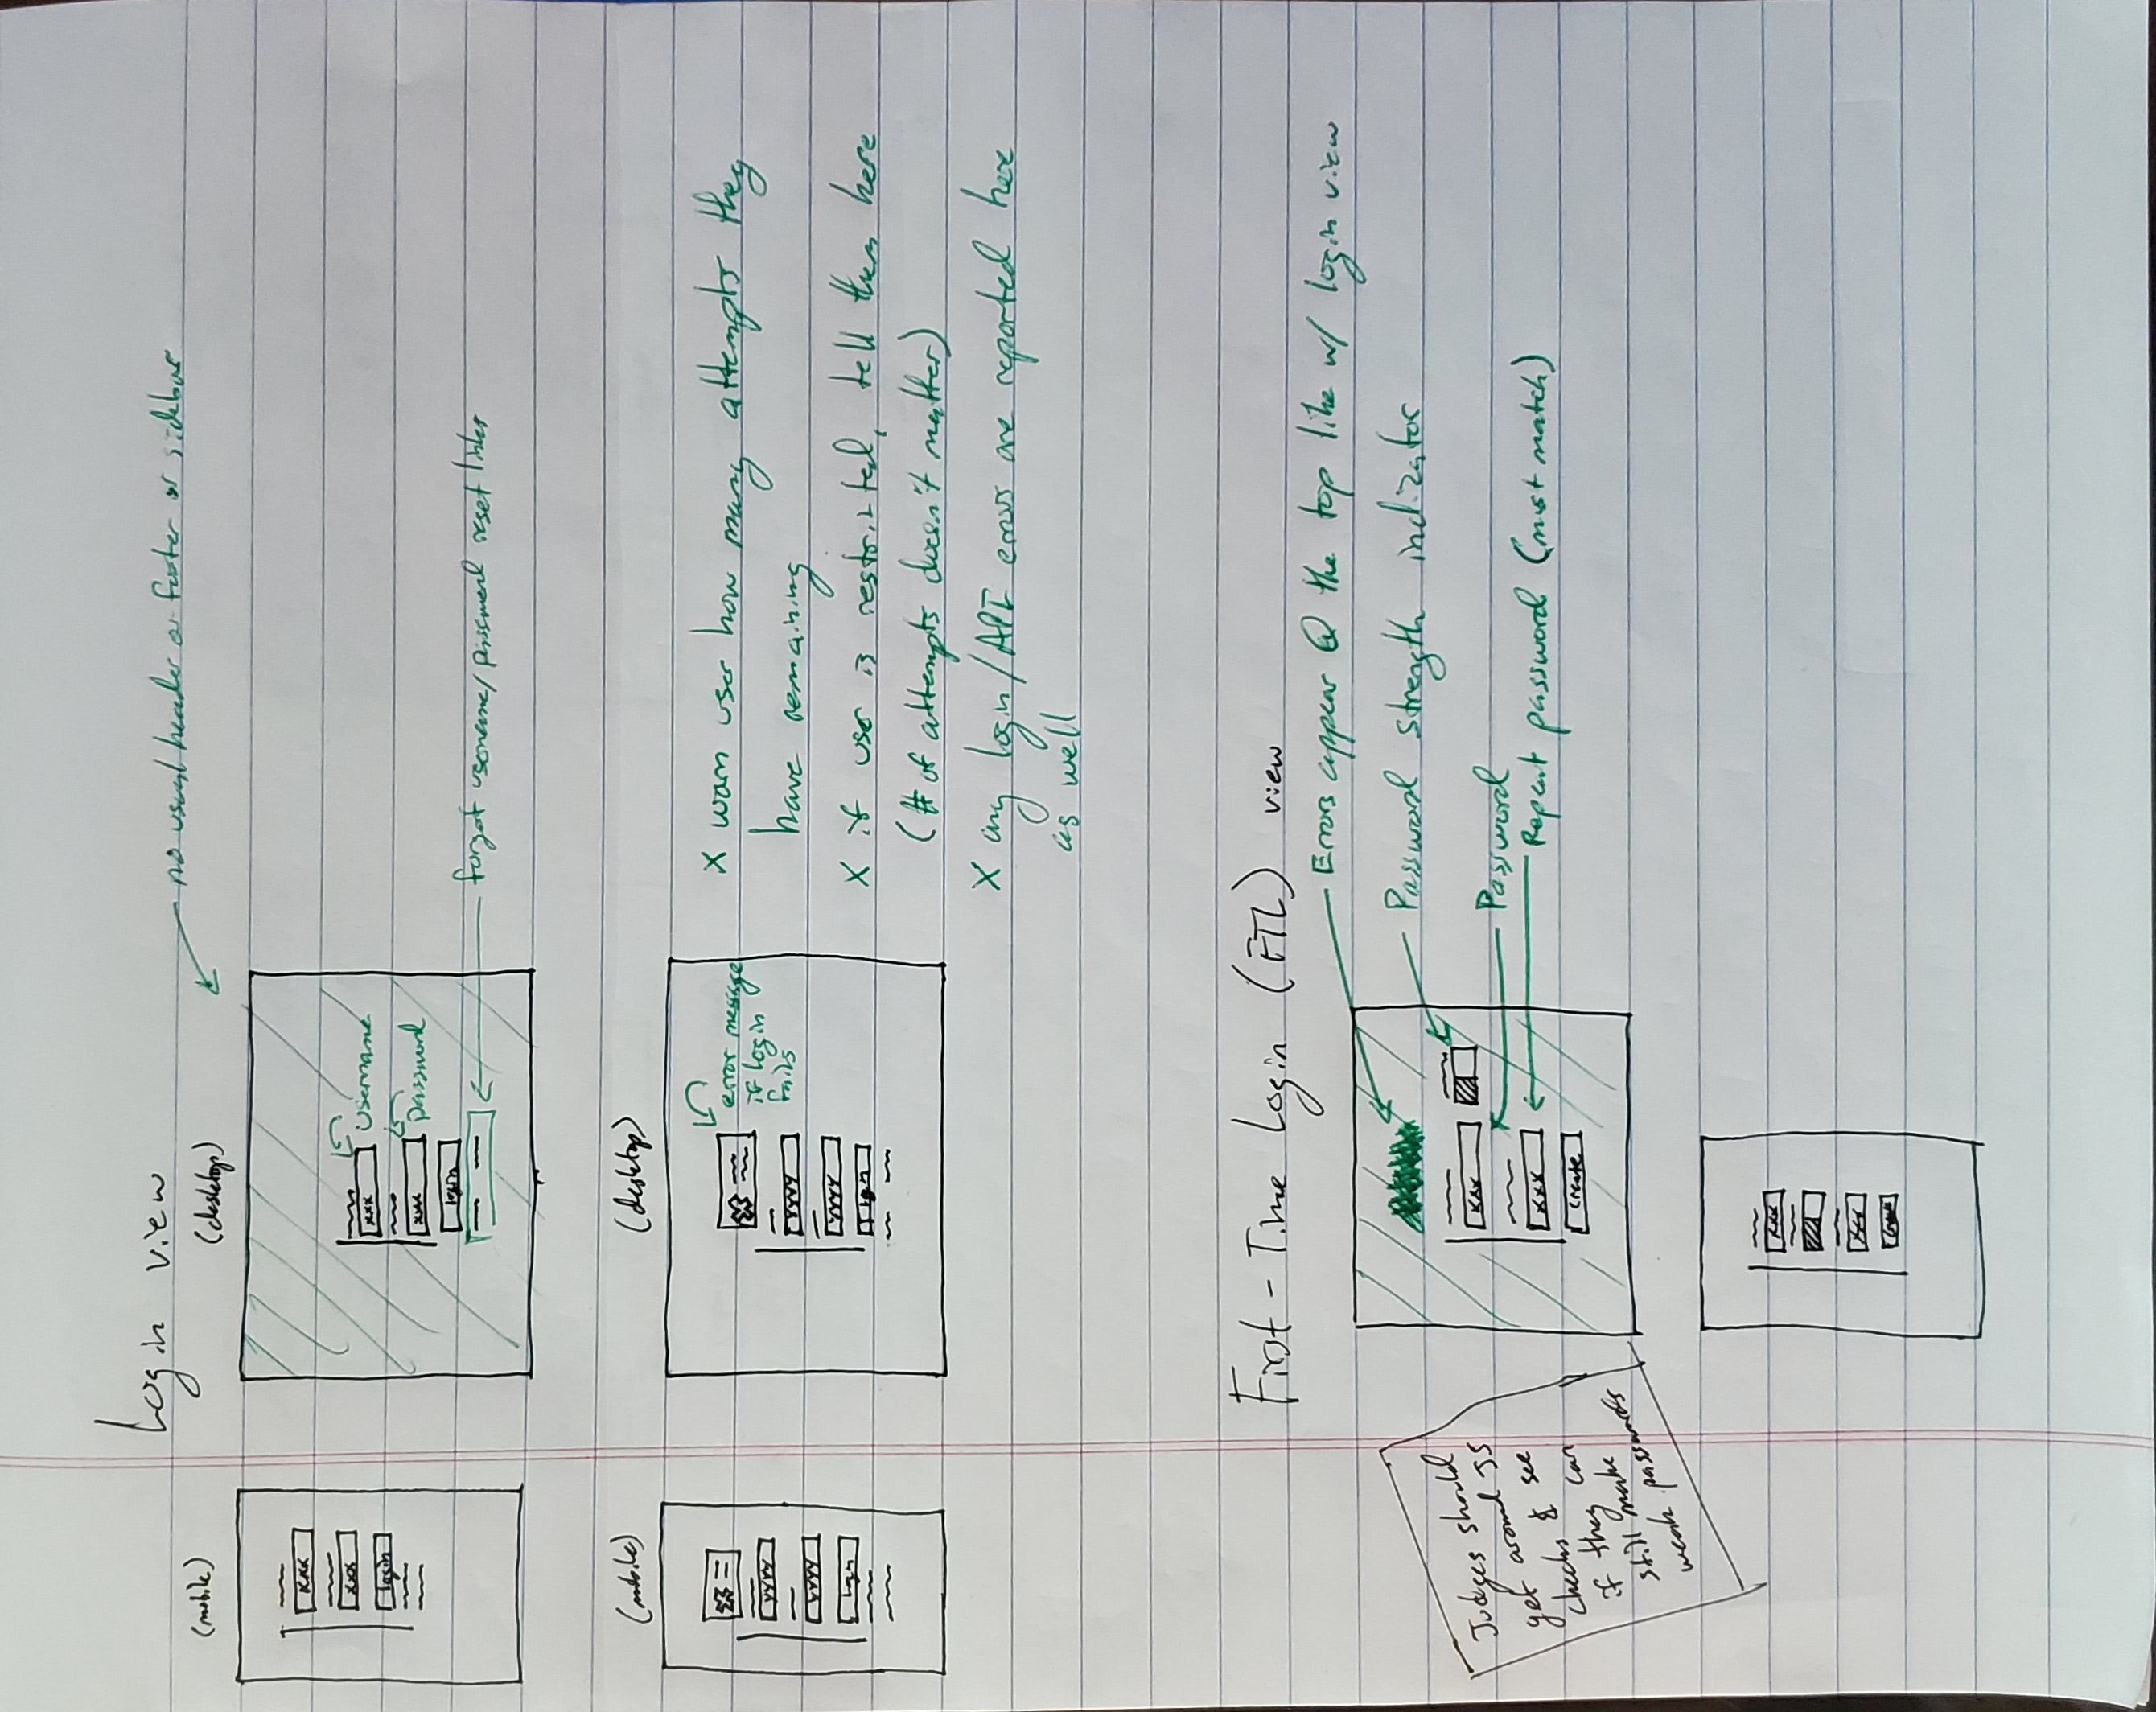 Login view
no usual header or footer or sidebar
(mobile)
(desktop)
xxx
xxx
login
xxx
Username
xxx
password
login
forgot username/password reset links
(mobile)
(desktop)
error message
if login
fails
YYYY
YYYY
login
YYYY
YYYY
login
X warn user how many attempts they
have remaining
X if user is restricted, tell them here
(# of attempts doesn't matter)
X any login/API errors are reported here
as well
First-Time Login (FTL) view
Errors appear @ the top like w/ login view
Password strength indicator
xxx
Password
xxx
Repeat password (must match)
create
Judges should
get around JS
checks & see
if they can
still make
weak passwords
xxx
xxx
create